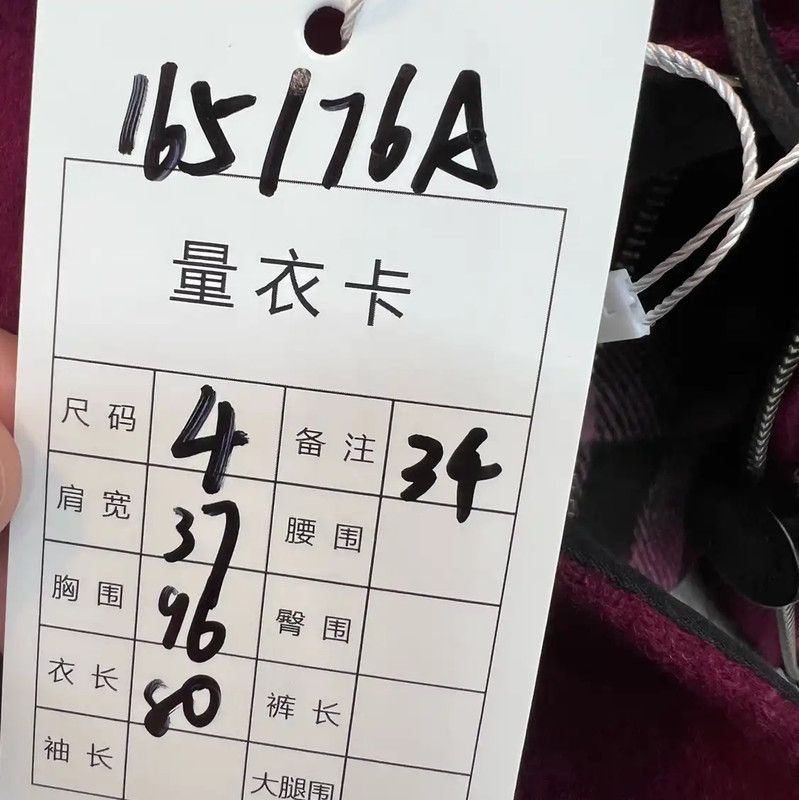 165/76A
量衣卡
尺码 4 备注 34
肩宽 37 腰围
胸围 96 臀围
衣长 80 裤长
袖长 大腿围